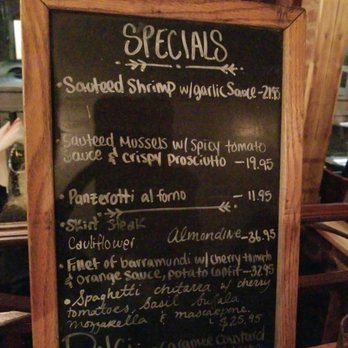 SPECIALS
• Sauteed Shrimp w/garlic Sauce - 21.95
Sauteed Mussels w/ Spicy tomato
Sauce & crispy prosciutto - 19.95
• Panzerotti al forno - 11.95
• Skirt Steak
Cauliflower Almondine - 36.95
• Fillet of barramundi w/cherry tomato
& orange sauce, potato confit - 32.95
• Spaghetti chitarra w/ cherry
tomatoes, basil bufala
mozzarella & mascarpone
$25.95
Dolci: caramel custard